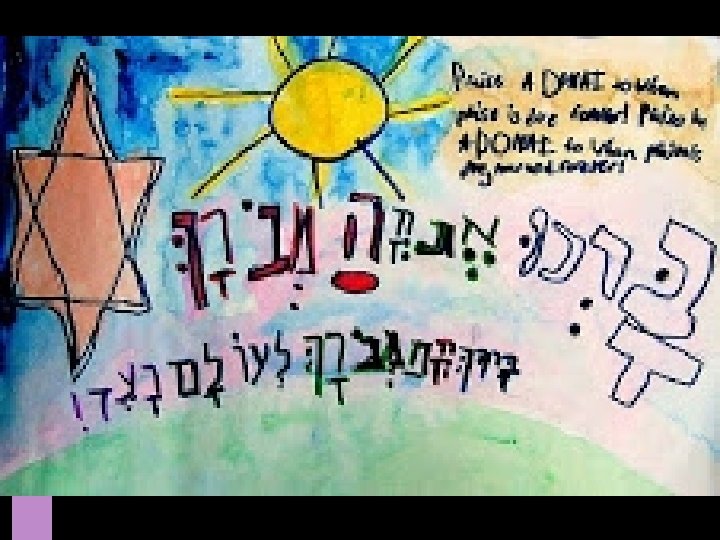 Praise ADONAI to whom
praise is due forever! Praise be
ADONAI to whom praise is
due now and forever!
בָּרְכוּ אֶת יְיָ הַמְבֹרָךְ
בָּרוּךְ יְיָ הַמְבֹרָךְ לְעוֹלָם וָעֶד!